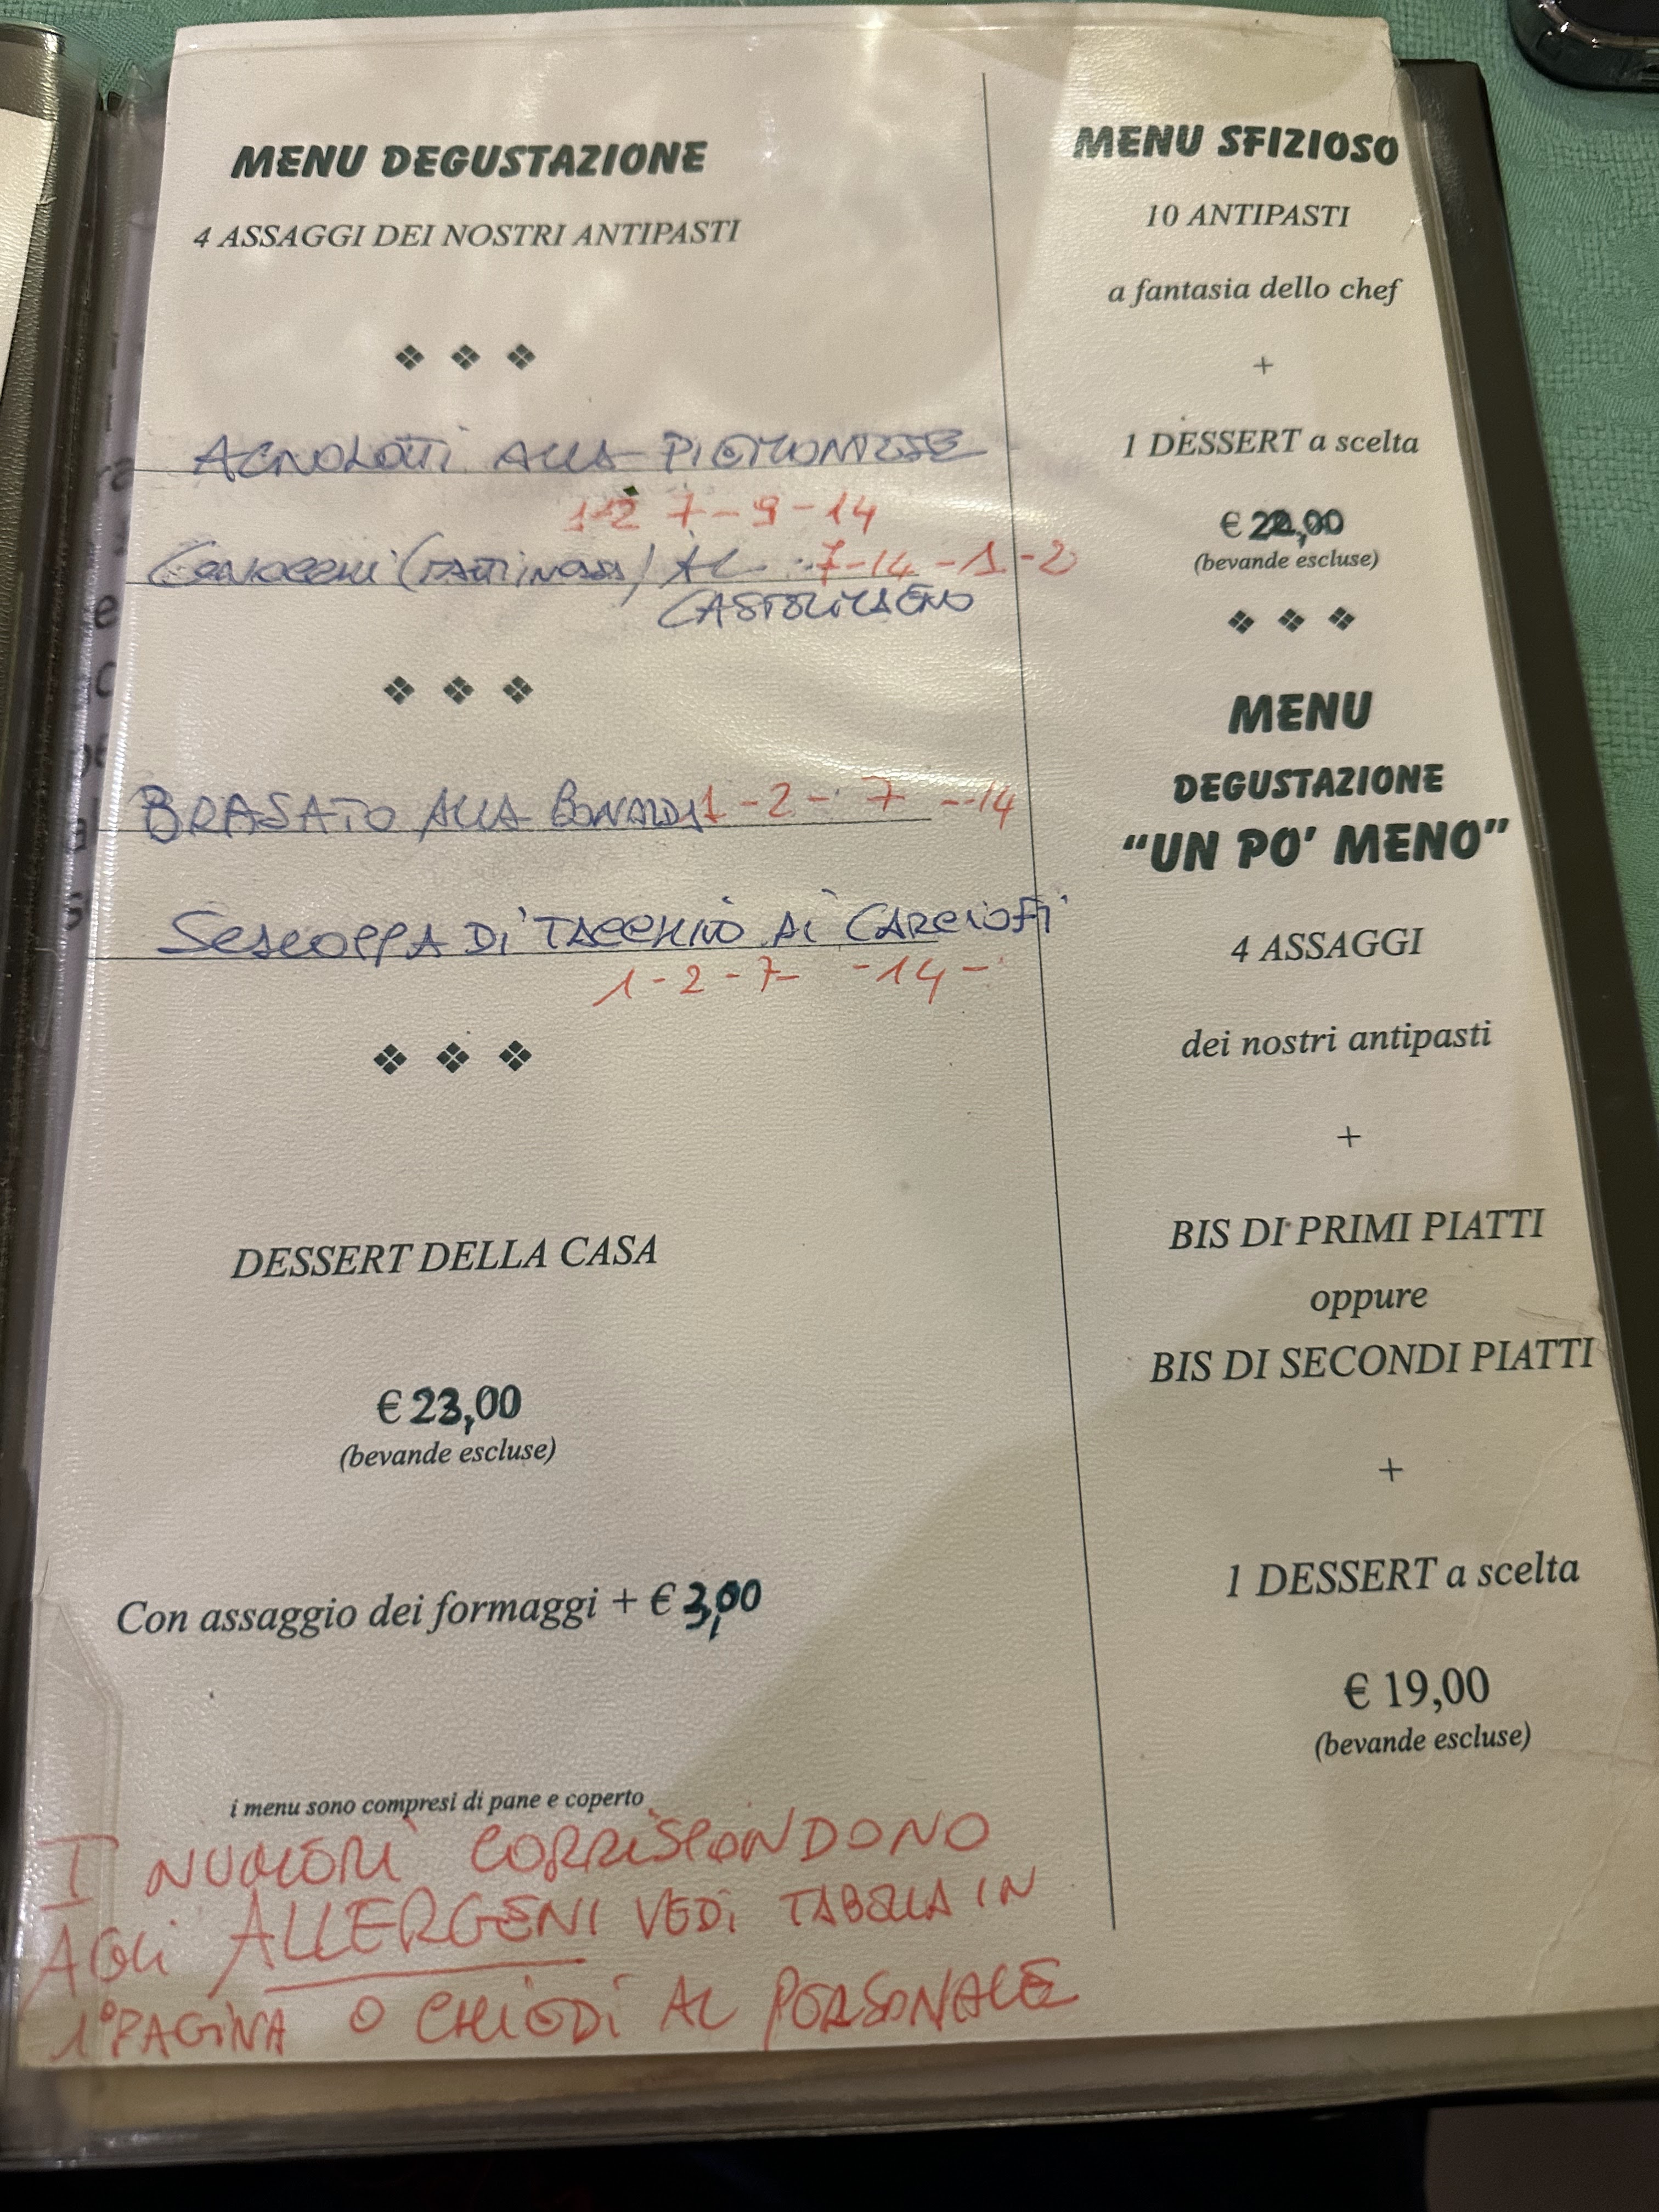 MENU DEGUSTAZIONE
4 ASSAGGI DEI NOSTRI ANTIPASTI
AGNOLOTTI ALLA PIEMONTESE
1-2 7-9-14
AL 7-14-1-2
BRASATO ALLA 1-2-7-14
SCALOPPA DI TACCHINO AI CARCIOFI
1-2-7-14-
DESSERT DELLA CASA
€ 23,00
(bevande escluse)
Con assaggio dei formaggi + € 3,00
i menu sono compresi di pane e coperto
I NUMERI CORRISPONDONO
AGLI ALLERGENI VEDI TABELLA IN
1° PAGINA O CHIEDI AL PERSONALE
MENU SFIZIOSO
10 ANTIPASTI
a fantasia dello chef
+
1 DESSERT a scelta
€ 22,00
(bevande escluse)
MENU
DEGUSTAZIONE
“UN PO’ MENO”
4 ASSAGGI
dei nostri antipasti
+
BIS DI PRIMI PIATTI
oppure
BIS DI SECONDI PIATTI
+
1 DESSERT a scelta
€ 19,00
(bevande escluse)